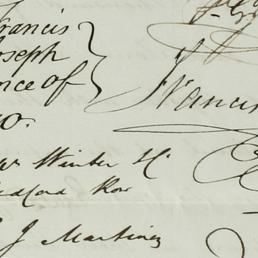 Francis
Joseph
nce of
o.
Francis
Winter
Bedford Row
J Martinez